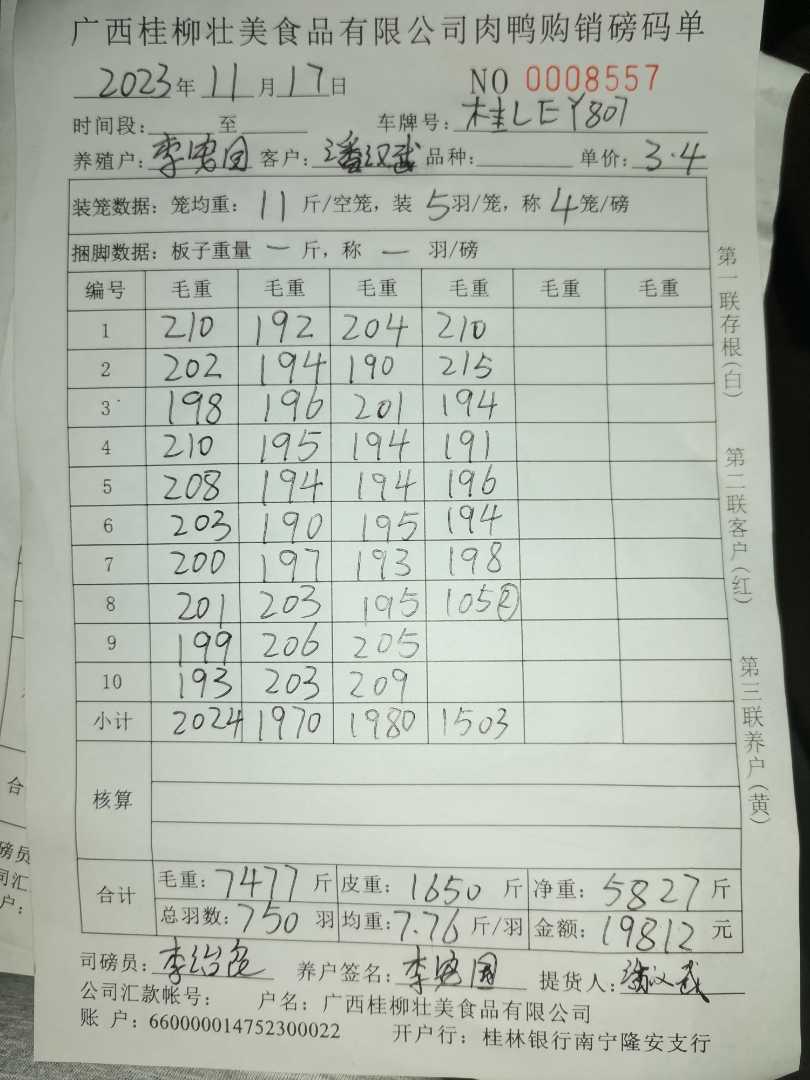 广西桂柳壮美食品有限公司肉鸭购销磅码单
2023年11月17日 NO 0008557
时间段: 至 车牌号: 桂LEY807
养殖户: 李勇国 客户: 潘汉武 品种: 单价: 3.4
装笼数据: 笼均重: 11 斤/空笼, 装 5 羽/笼, 称 4 笼/磅
捆脚数据: 板子重量 一 斤, 称 一 羽/磅
编号 毛重 毛重 毛重 毛重 毛重 毛重
1 210 192 204 210
2 202 194 190 215
3 198 196 201 194
4 210 195 194 191
5 208 194 194 196
6 203 190 195 194
7 200 197 193 198
8 201 203 195 105②
9 199 206 205
10 193 203 209
小计 2024 1970 1980 1503
核算
合计 毛重: 7477 斤 皮重: 1650 斤 净重: 5827 斤
总羽数: 750 羽 均重: 7.76 斤/羽 金额: 19812 元
司磅员: 养户签名: 李勇国 提货人:
公司汇款帐号: 户名: 广西桂柳壮美食品有限公司
账 户: 660000014752300022 开户行: 桂林银行南宁隆安支行
第一联存根(白) 第二联客户(红) 第三联养户(黄)
合
磅员
司汇
户: